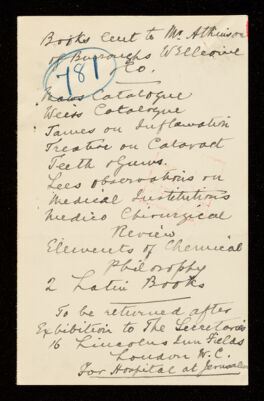 Books lent to Mr. Atkinson
of Burroughs Wellcome
Co.
781
Maws Catalogue
Weiss Catalogue
James on Inflamation
Treatise on Cataract
Teeth & Gums.
Lees observations on
Medical Institutions
Medico Chirurgical
Review
Elements of Chemical
Philosophy
2 Latin Books
To be returned after
Exhibition to The Secretaries
16 Lincolns Inn Fields
London W.C.
For Hospital at Jerusalem